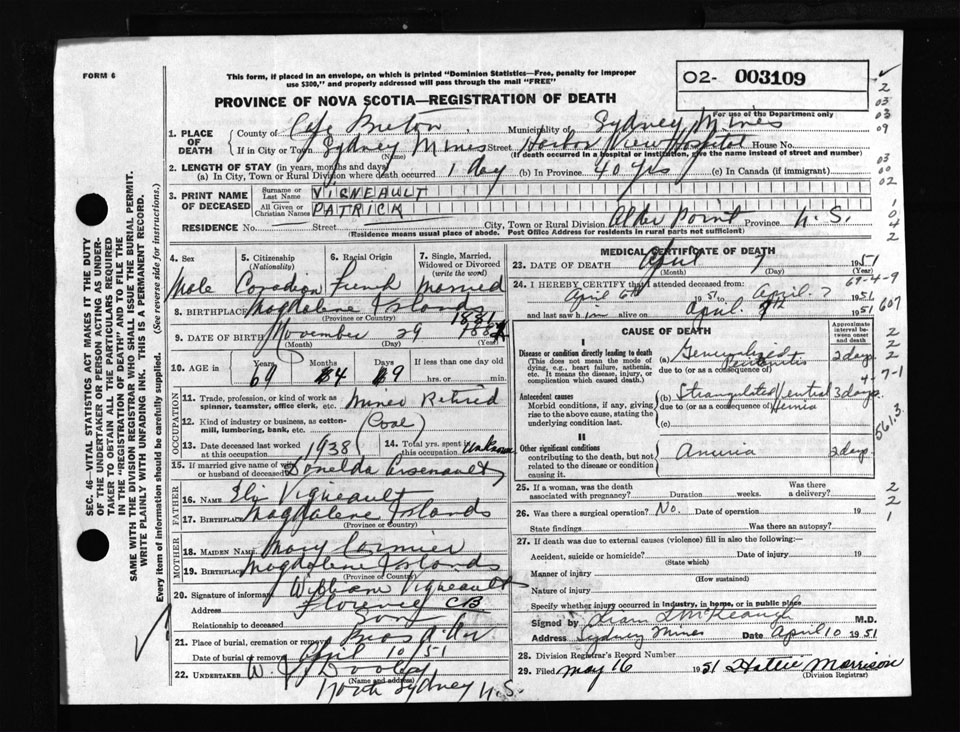 FORM 6
This form, if placed in an envelope, on which is printed "Dominion Statistics—Free, penalty for improper
use $300," and properly addressed will pass through the mail "FREE"
02- 003109
For use of the Department only
PROVINCE OF NOVA SCOTIA—REGISTRATION OF DEATH
1. PLACE OF DEATH
County of Cape Breton Municipality of Sydney Mines
If in City or Town Sydney Mines Street Harbor View Hospital House No.
(Name) (If death occurred in a hospital or institution, give the name instead of street and number)
2. LENGTH OF STAY (in years, months and days)
(a) In City, Town or Rural Division where death occurred 1 day (b) In Province 40 yrs (c) In Canada (if immigrant)
3. PRINT NAME OF DECEASED
Surname or Last Name VIGNEAULT
All Given or Christian Names PATRICK
RESIDENCE No. Street City, Town or Rural Division Alder Point Province N.S.
(Residence means usual place of abode. Post Office Address for residents in rural parts not sufficient)
4. Sex Male
5. Citizenship (Nationality) Canadian
6. Racial Origin French
7. Single, Married, Widowed or Divorced (write the word) Married
8. BIRTHPLACE Magdalene Islands
(Province or Country)
9. DATE OF BIRTH November 29 1881 1882
(Month) (Day)
10. AGE in Years 69 Months 4 Days 9 If less than one day old
hrs. or min.
OCCUPATION
11. Trade, profession, or kind of work as spinner, teamster, office clerk, etc. Miner Retired
12. Kind of industry or business, as cotton-mill, lumbering, bank, etc. (Coal)
13. Date deceased last worked at this occupation 1938
14. Total yrs. spent at this occupation Unknown
15. If married give name of wife or husband of deceased Donelda Arsenault
FATHER
16. NAME Eli Vigneault
17. BIRTHPLACE Magdalene Islands
(Province or Country)
MOTHER
18. MAIDEN NAME Mary Cormier
19. BIRTHPLACE Magdalene Islands
(Province or Country)
20. Signature of informant William Vigneault
Address Florence CB
Relationship to deceased Son
21. Place of burial, cremation or removal Bras d'Or
Date of burial or removal April 10/51
22. UNDERTAKER W. J. Dooley
(Name and address)
North Sydney N.S.
MEDICAL CERTIFICATE OF DEATH
23. DATE OF DEATH April 7 1951
(Month) (Day) (Year)
24. I HEREBY CERTIFY that I attended deceased from:
April 6th 1951 to April 7 1951
and last saw him alive on April 7th 1951
CAUSE OF DEATH
Approximate interval between onset and death
I
Disease or condition directly leading to death
(This does not mean the mode of dying, e.g., heart failure, asthenia, etc. It means the disease, injury, or complication which caused death.)
(a) Generalized Peritonitis 2 days
due to (or as a consequence of)
Antecedent causes
Morbid conditions, if any, giving rise to the above cause, stating the underlying condition last.
(b) Strangulated Ventral Hernia 3 days
due to (or as a consequence of)
(c)
II
Other significant conditions
contributing to the death, but not related to the disease or condition causing it.
Anuria 2 days
25. If a woman, was the death associated with pregnancy? Duration weeks. Was there a delivery?
26. Was there surgical operation? No. Date of operation 19
State findings Was there an autopsy?
27. If death was due to external causes (violence) fill in also the following:—
Accident, suicide or homicide? Date of injury 19
(State which)
Manner of injury
(How sustained)
Nature of injury
Specify whether injury occurred in industry, in home, or in public place
Signed by McKeough M.D.
Address Sydney Mines Date April 10 1951
28. Division Registrar's Record Number
29. Filed May 16 1951 Hattie Morrison
(Division Registrar)
SEC. 46—VITAL STATISTICS ACT MAKES IT THE DUTY
OF THE UNDERTAKER OR PERSON ACTING AS UNDER-
TAKER TO OBTAIN ALL THE PARTICULARS REQUIRED
IN THE "REGISTRATION OF DEATH" AND TO FILE THE
SAME WITH THE DIVISION REGISTRAR WHO SHALL ISSUE THE BURIAL PERMIT.
WRITE PLAINLY WITH UNFADING INK. THIS IS A PERMANENT RECORD.
Every item of information should be carefully supplied. (See reverse side for instructions.)
2
03
03
09
03
00
02
1
0
4
2
69-4-9
607
2
2
2
4-7-1
561.3
2
2
1